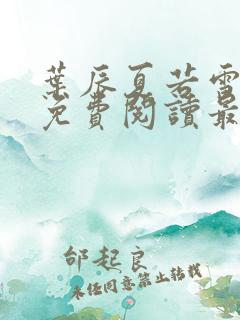 葉辰夏若雪
免費閱讀最
邰起良
未经同意禁止转载